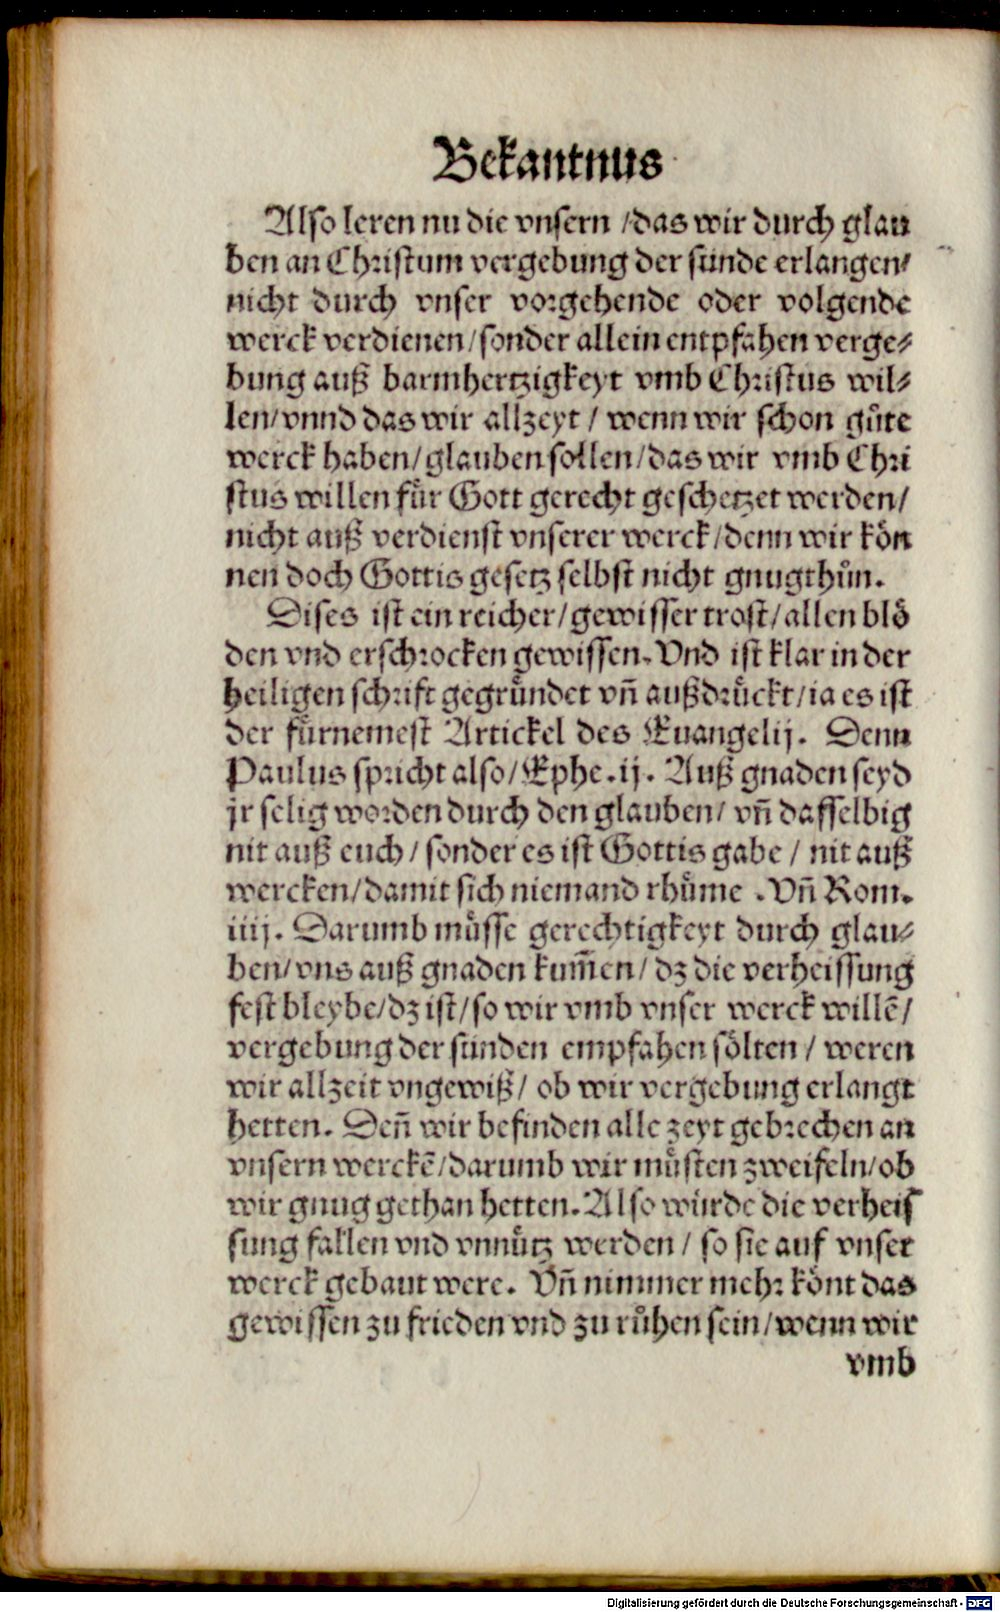 Bekantnus
Also leren nu die vnsern /das wir durch glau
ben an Christum vergebung der sünde erlangen/
nicht durch vnser vorgehende oder volgende
werck verdienen/sonder allein entpfahen verge⸗
bung auß barmhertzigkeyt vmb Christus wil⸗
len/vnnd das wir allzeyt / wenn wir schon gůte
werck haben/glauben sollen/das wir vmb Chri
stus willen für Gott gerecht geschetzet werden/
nicht auß verdienst vnserer werck/denn wir kön
nen doch Gottis gesetz selbst nicht gnugthůn.
Dises ist ein reicher/gewisser trost/allen blö
den vnd erschrocken gewissen. Vnd ist klar in der
heiligen schrift gegründet vñ außdrückt/ia es ist
der fürnemest Artickel des Euangelij. Denn
Paulus spricht also/Ephe.ij. Auß gnaden seyd
jr selig worden durch den glauben/ vñ dasselbig
nit auß euch / sonder es ist Gottis gabe / nit auß
wercken/damit sich niemand rhůme .Vñ Rom.
iiij. Darumb můsse gerechtigkeyt durch glau⸗
ben/vns auß gnaden kum̃en/ dz die verheissung
fest bleybe/dz ist/so wir vmb vnser werck willẽ/
vergebung der sünden empfahen sölten / weren
wir allzeit vngewiß/ ob wir vergebung erlangt
hetten. Deñ wir befinden alle zeyt gebrechen an
vnsern werckẽ/darumb wir můsten zweifeln/ob
wir gnug gethan hetten. Also würde die verheis
sung fallen vnd vnnütz werden / so sie auf vnser
werck gebaut were. Vñ nimmer mehr könt das
gewissen zu frieden vnd zu růhen sein/wenn wir
vmb
Digitalisierung gefördert durch die Deutsche Forschungsgemeinschaft - DFG